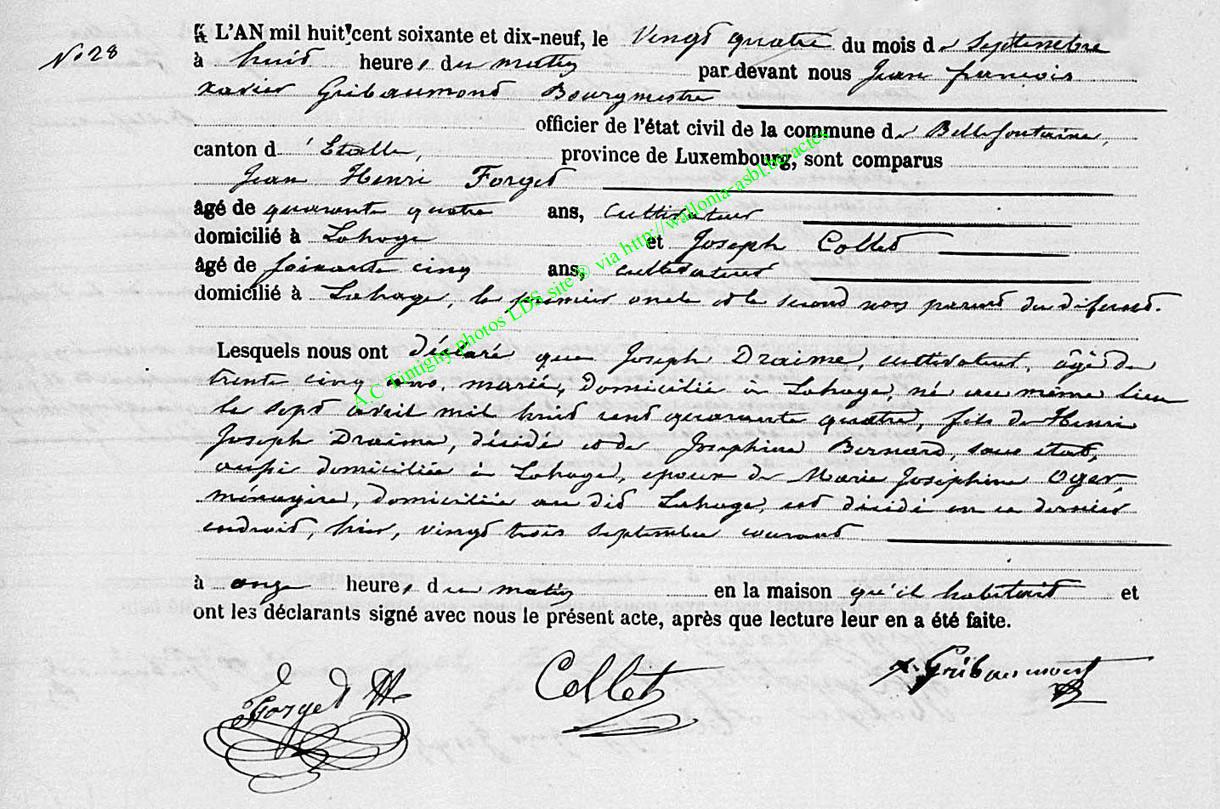 N° 28
L'AN mil huit cent soixante et dix-neuf, le Vingt quatre du mois de Septembre
à huit heures du matin par devant nous Jean françois
xavier Gribaumont Bourgmestre
officier de l'état civil de la commune de Bellefontaine,
canton d'Etalle, province de Luxembourg, sont comparus
Jean Henri Forget
âgé de quarante quatre ans, cultivateur
domicilié à Lahage et Joseph Collet
âgé de soixante cinq ans, cultivateur
domicilié à Lahage, le premier oncle et le second non parent du défunt.
Lesquels nous ont déclaré que Joseph Draime, cultivateur, âgé de
trente cinq ans, marié, domicilié à Lahage, né au même lieu
le sept avril mil huit cent quarante quatre, fils de Henri
Joseph Draime, décédé et de Joséphine Bernard, sans état,
aussi domiciliée à Lahage, époux de Marie Joséphine Oger,
ménagère, domiciliée au dit Lahage, est décédé en ce dernier
endroit, hier, vingt trois septembre courant
à onze heures du matin en la maison qu'il habitait et
ont les déclarants signé avec nous le présent acte, après que lecture leur en a été faite.
Forget JH Collet x. Gribaumont
A.C Tintigny photos LDS site © via http://wallonia-asbl.be/actes